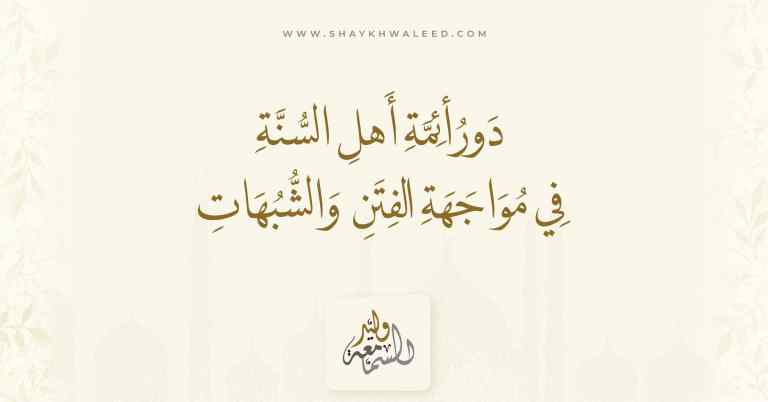 WWW.SHAYKHWALEED.COM
دَورُ أَئِمَّةِ أَهلِ السُّنَّةِ
فِي مُوَاجَهَةِ الفِتَنِ وَالشُّبُهَاتِ
وليد
السماعة